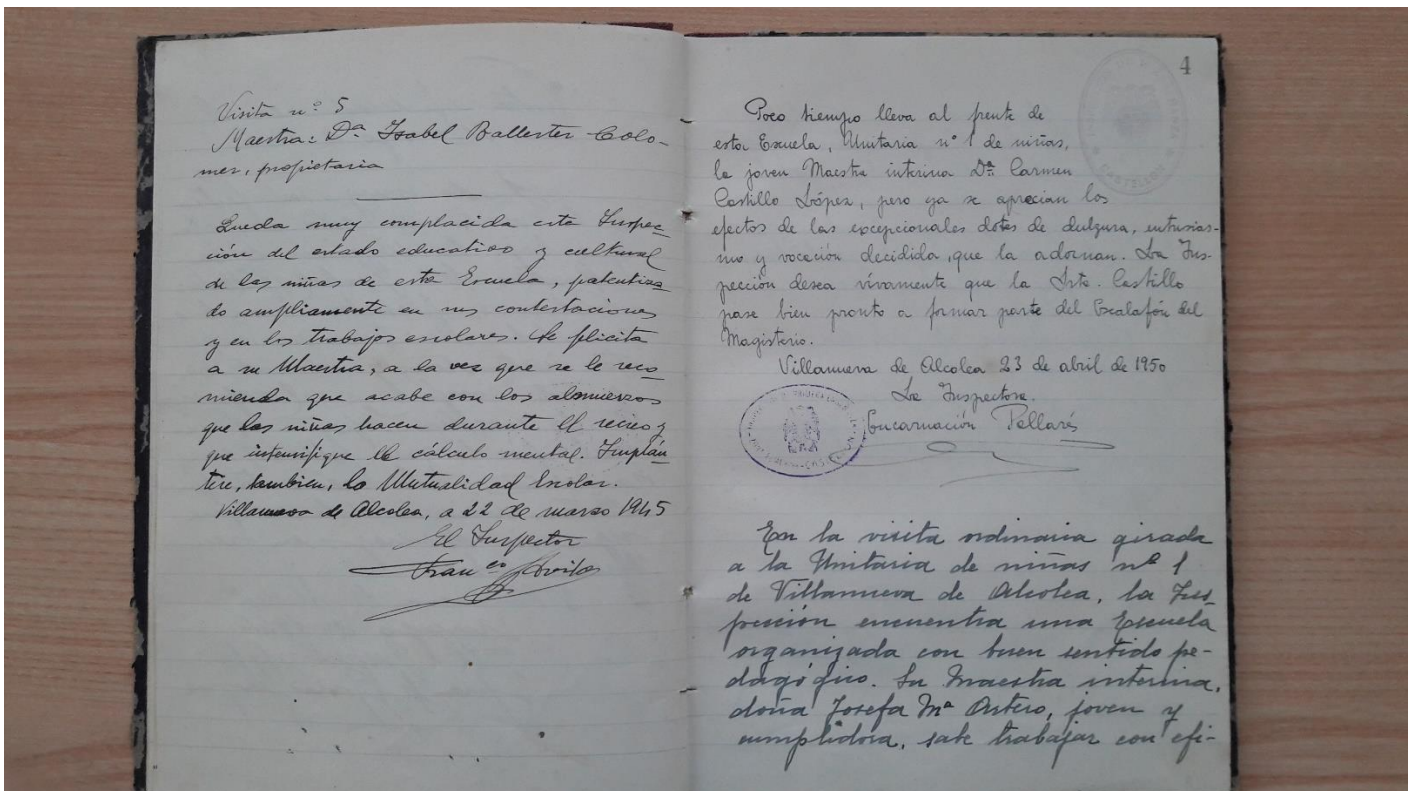 Visita nº 5
Maestra: Dª Isabel Ballester Colo-
mer, propietaria
Queda muy complacida esta Inspec-
ción del estado educativo y cultural
de las niñas de esta Escuela, patentiza-
do ampliamente en sus contestaciones
y en los trabajos escolares. Se felicita
a su Maestra, a la vez que se le reco-
mienda que acabe con los almuerzos
que las niñas hacen durante el recreo y
que intensifique el cálculo mental. Implán-
tese, tambien, la Mutualidad Escolar.
Villanueva de Alcolea, a 22 de marzo 1945
El Inspector
Franco
4
CASTELLON
Poco tiempo lleva al frente de
esta Escuela, Unitaria nº 1 de niñas,
la joven Maestra interina Dª Carmen
Castillo López, pero ya se aprecian los
efectos de las excepcionales dotes de dulzura, entusias-
mo y vocación decidida, que la adornan. La Ins-
pección desea vívamente que la Srta. Castillo
pase bien pronto a formar parte del Escalafón del
Magisterio.
Villanueva de Alcolea 23 de abril de 1950
La Inspectora.
Encarnación Pallarés
En la visita ordinaria girada
a la Unitaria de niñas nº 1
de Villanueva de Alcolea, la Ins-
pección encuentra una Escuela
organizada con buen sentido pe-
dagógico. Su Maestra interina,
doña Josefa Mª Antero, joven y
cumplidora, sabe trabajar con efi-